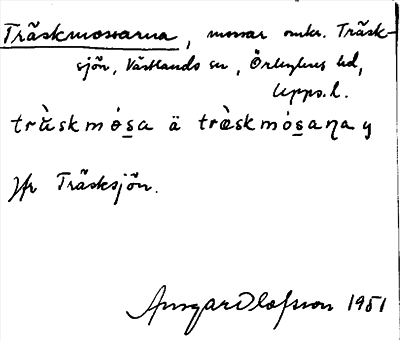 Träskmossarna, mossar omkr. Träsk-
sjön, Västlands sn, Örbyhus hd,
Upps. l.
tr&#x0251;̀skmósa ä træ̀skmósaɳa y
Jfr Träsksjön.
Ansgar Olofsson 1951